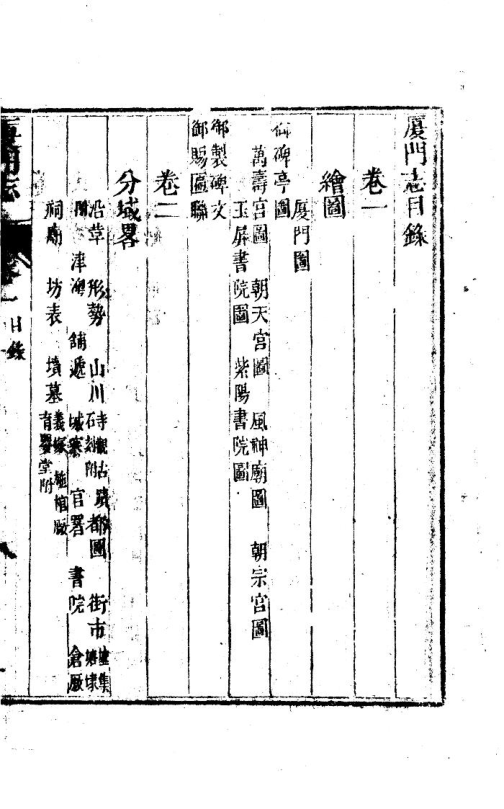 厦門志目錄
卷一
繪圖
厦門圖
御碑亭圖
萬壽宮圖 朝天宮圖 風神廟圖 朝宗宮圖
玉屏書院圖 紫陽書院圖
御製碑文
御賜匾聯
卷二
分域畧
沿革 形勢 山川 寺觀古蹟 石刻附 都圖 街市 墟集
津澳 鋪遞 城寨 官署 書院 倉廒
祠廟 坊表 墳墓 義塚 施棺廠 育嬰堂附
厦門志 目錄